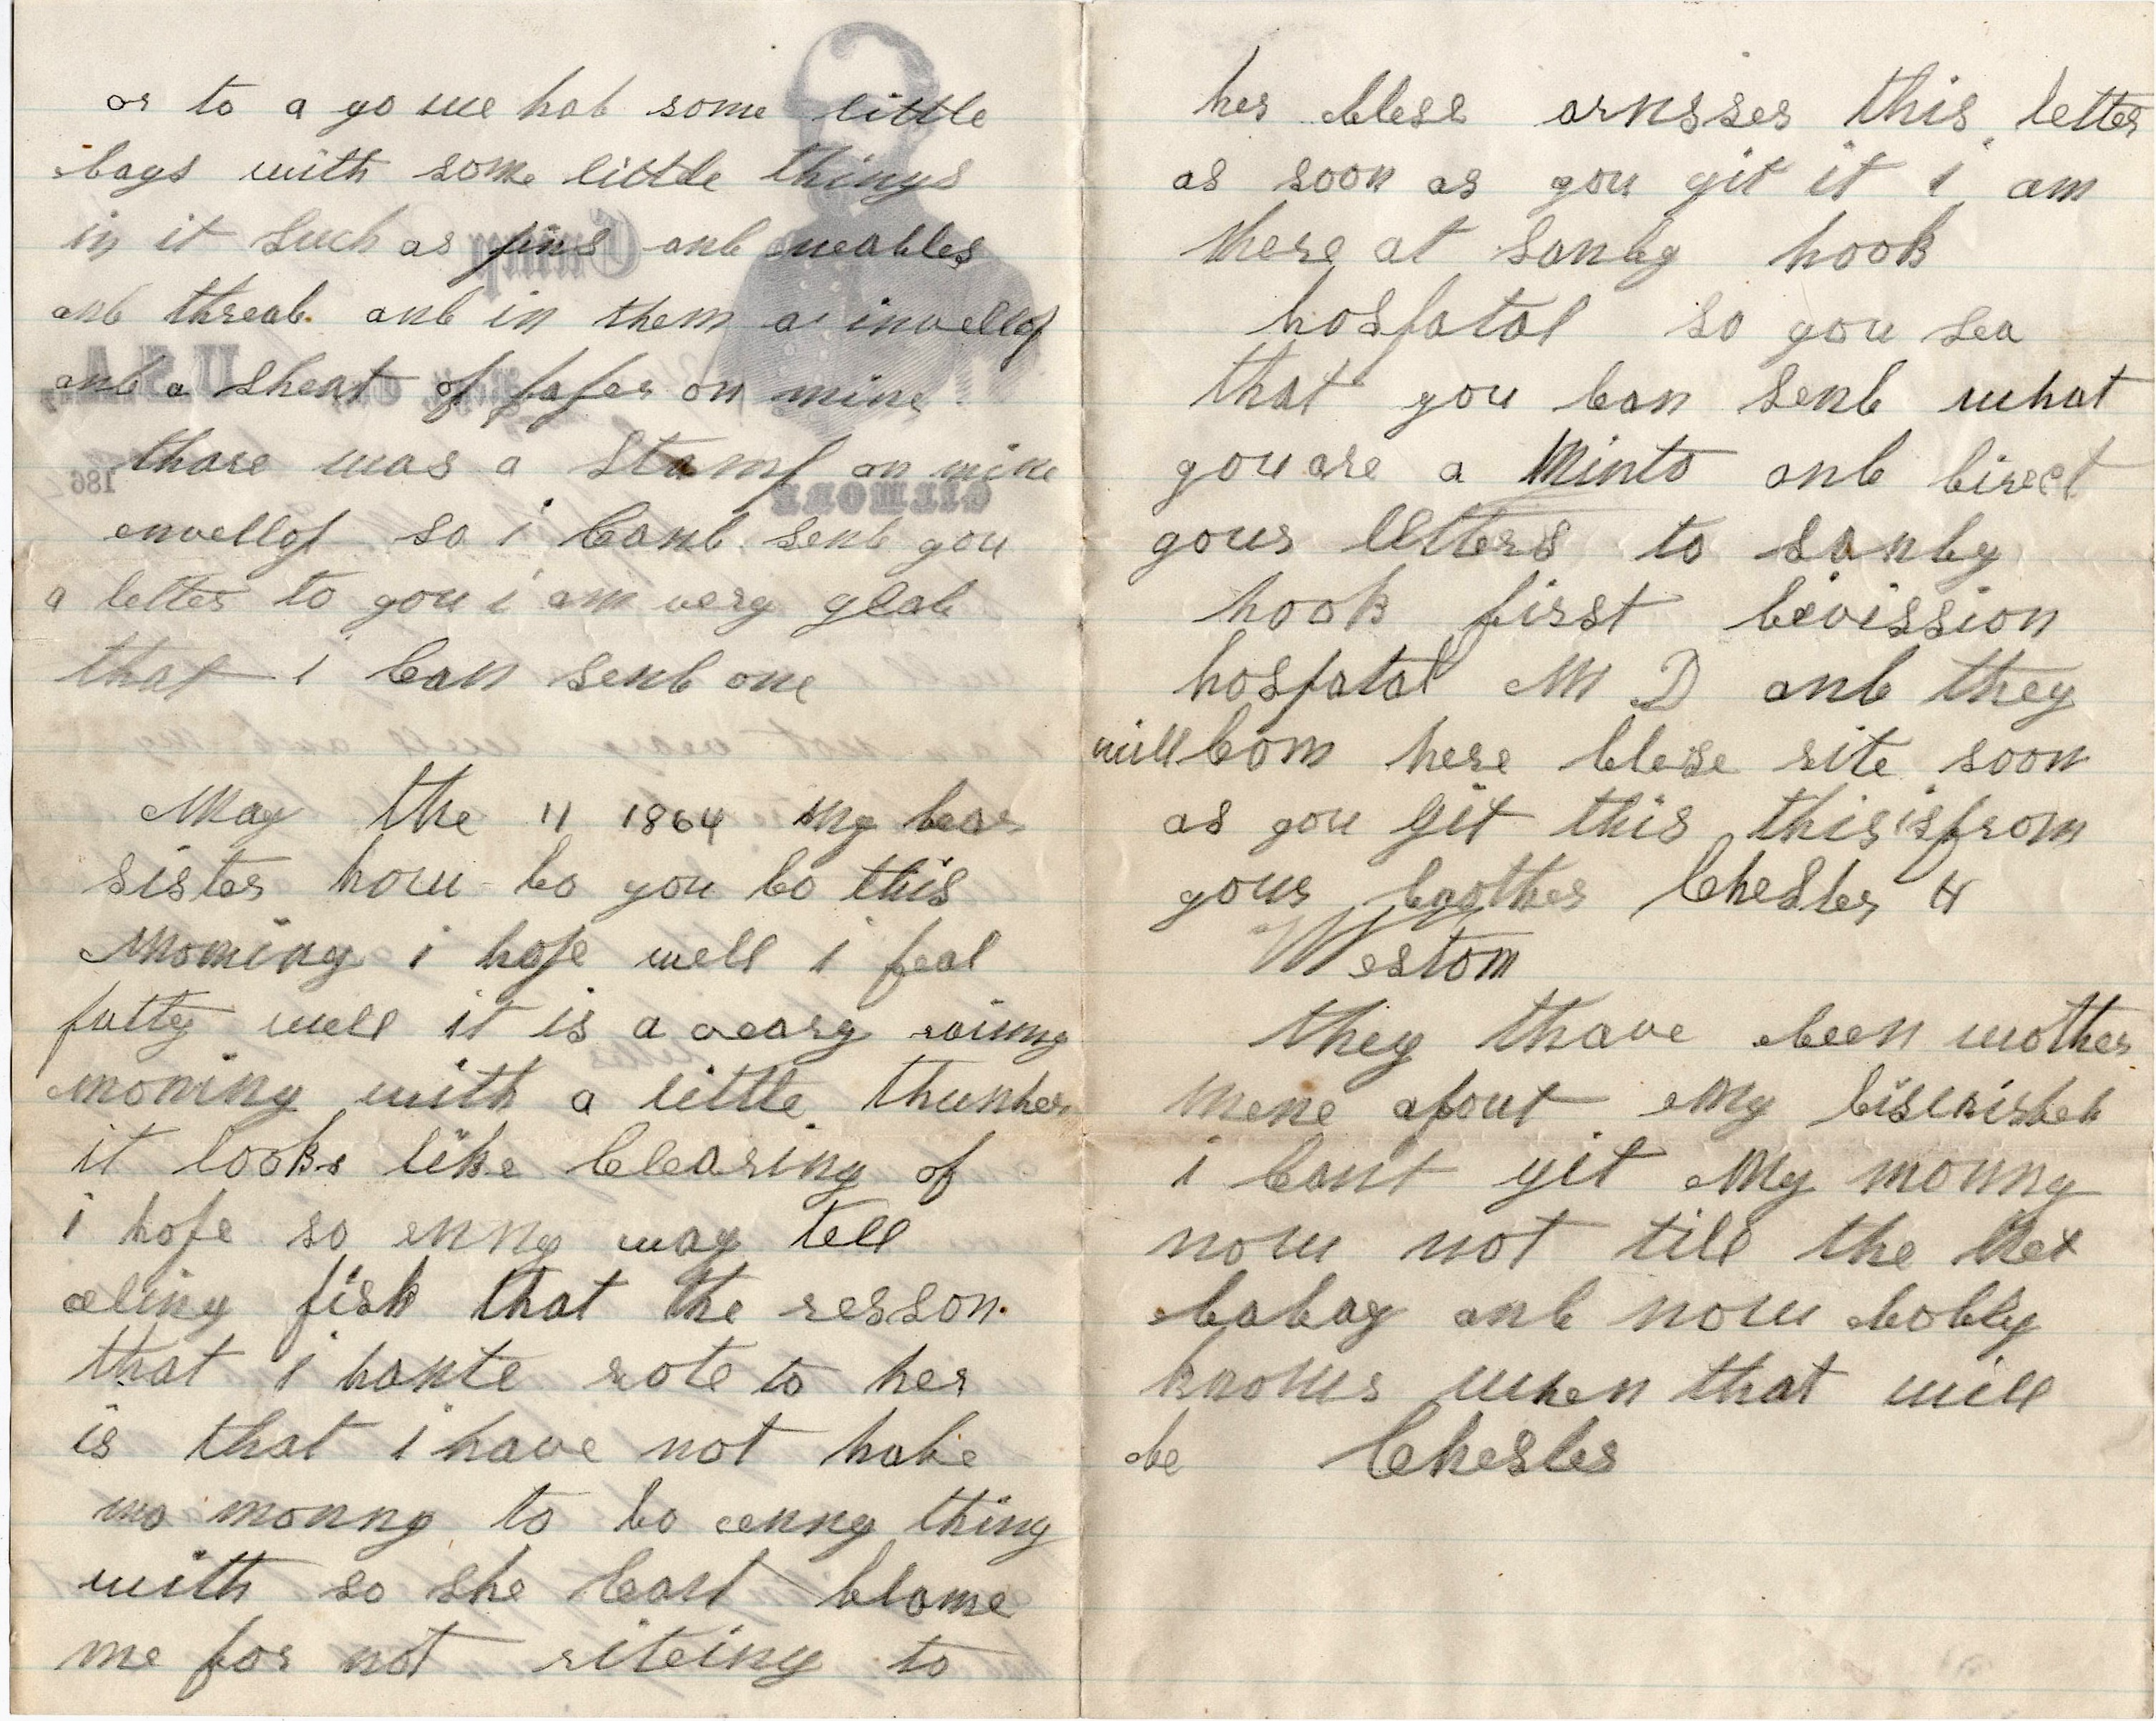 or to a go we had some little
bags with some little things
in it such as pins and neadles
and thread. and in them a invellop
and a sheat of paper on mine
thare was a stamp on mine
envellop so i cand send you
a letter to you i am very glad
that i can send one
May the 11 1864 My dear
sister how do you do this
Morning i hope well i feal
putty well it is a veary rainny
morning with a little thunder
it looks like clearing of
i hope so enny way tell
fisk that the resson.
that i hante rote to her
is that i have not hade
no monny to do enny thing
with so she cant blame
me for not riteing to
her plese arnsser this letter
as soon as you git it i am
there at sandy hook
hospatal so you sea
that you can send what
you are a Minto and direct
your letters to sandy
hook first division
hospatal M D and they
will com here plese rite soon
as you git this this is from
your brother Chester H
Westom
they thave been nother
mene about My discrished
i cant git My monny
now not till the Nex
paday and now bobby
knows when that will
be Chester
Camp
U.S.A.
186
GILLMORE